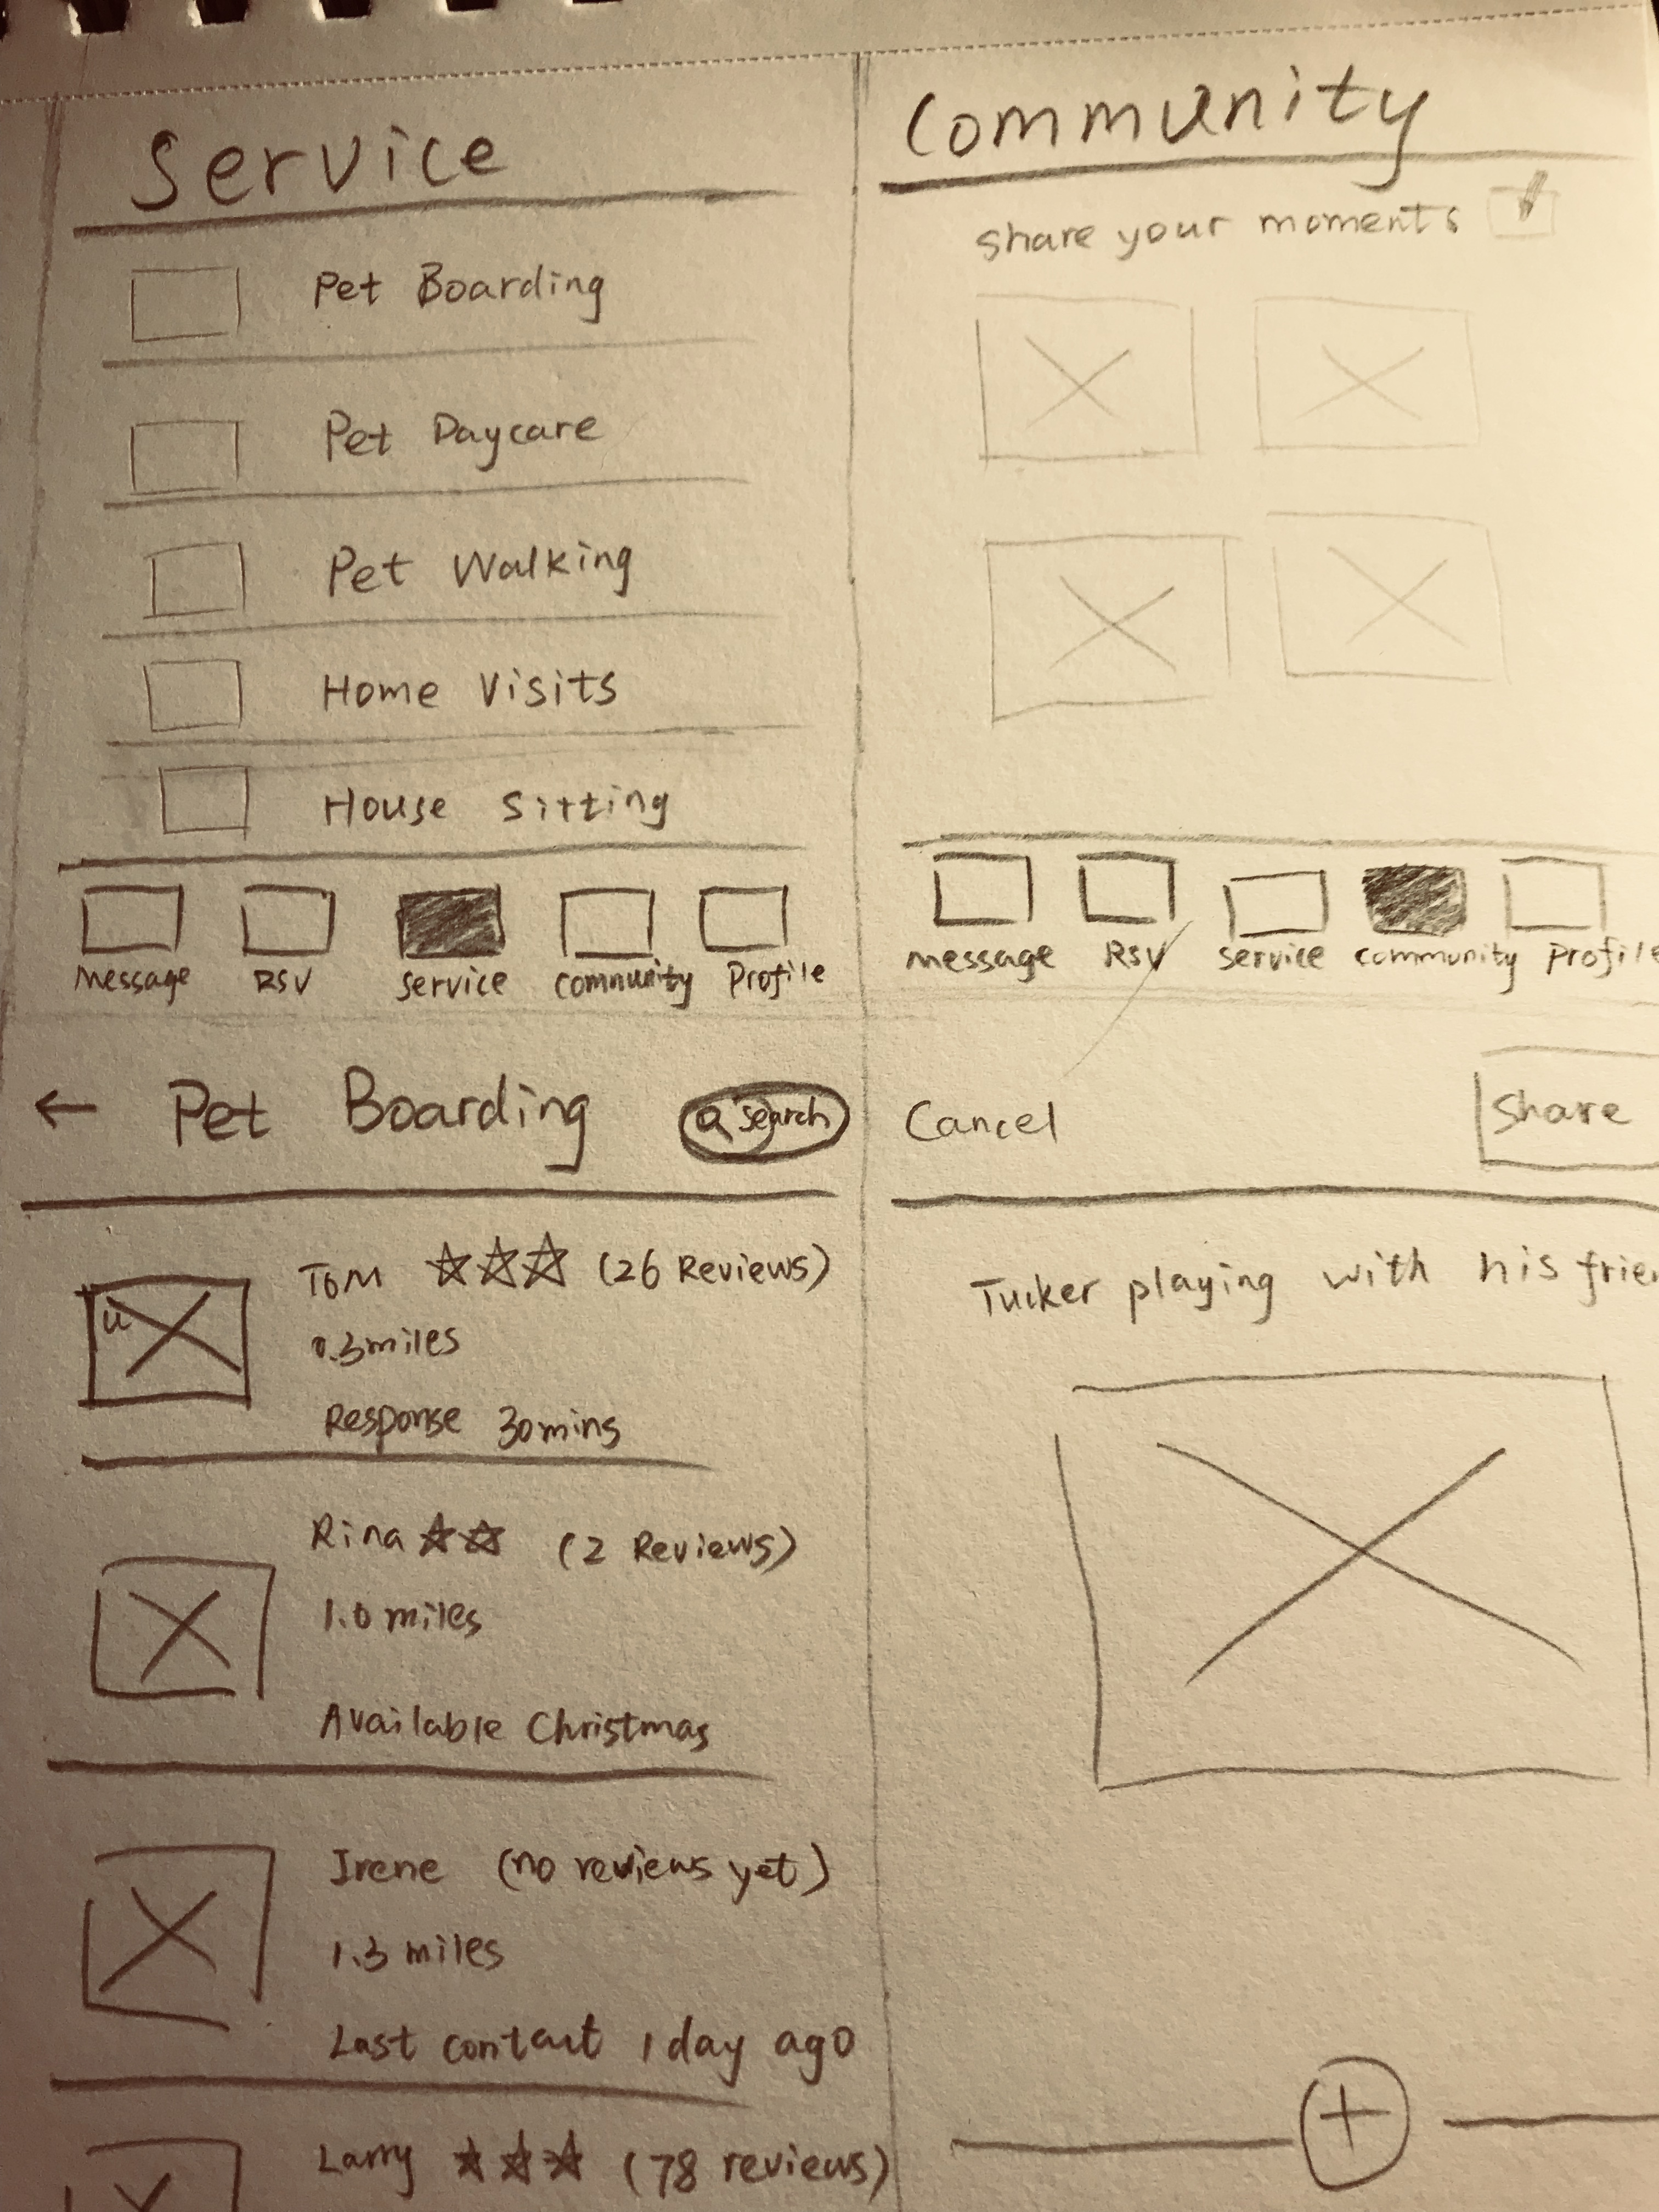 Service
Pet Boarding
Pet Daycare
Pet Walking
Home Visits
House Sitting
message RSV service community Profile
Community
share your moments
message RSV service community Profile
← Pet Boarding search
Tom ☆☆☆ (26 Reviews)
0.3miles
Response 30mins
Rina ☆☆ (2 Reviews)
1.0 miles
Available Christmas
Irene (no reviews yet)
1.3 miles
Last contact 1 day ago
Larry ☆☆☆ (78 reviews)
Cancel Share
Tucker playing with his
+